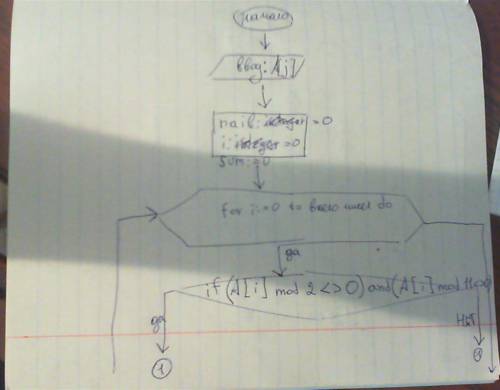 начало
ввод: A[j]
naib: integer = 0
i: integer = 0
sum: =0
for i:=0 to всего чисел do
да
if (A[i] mod 2 <> 0) and (A[i] mod 11
да
Нет
1